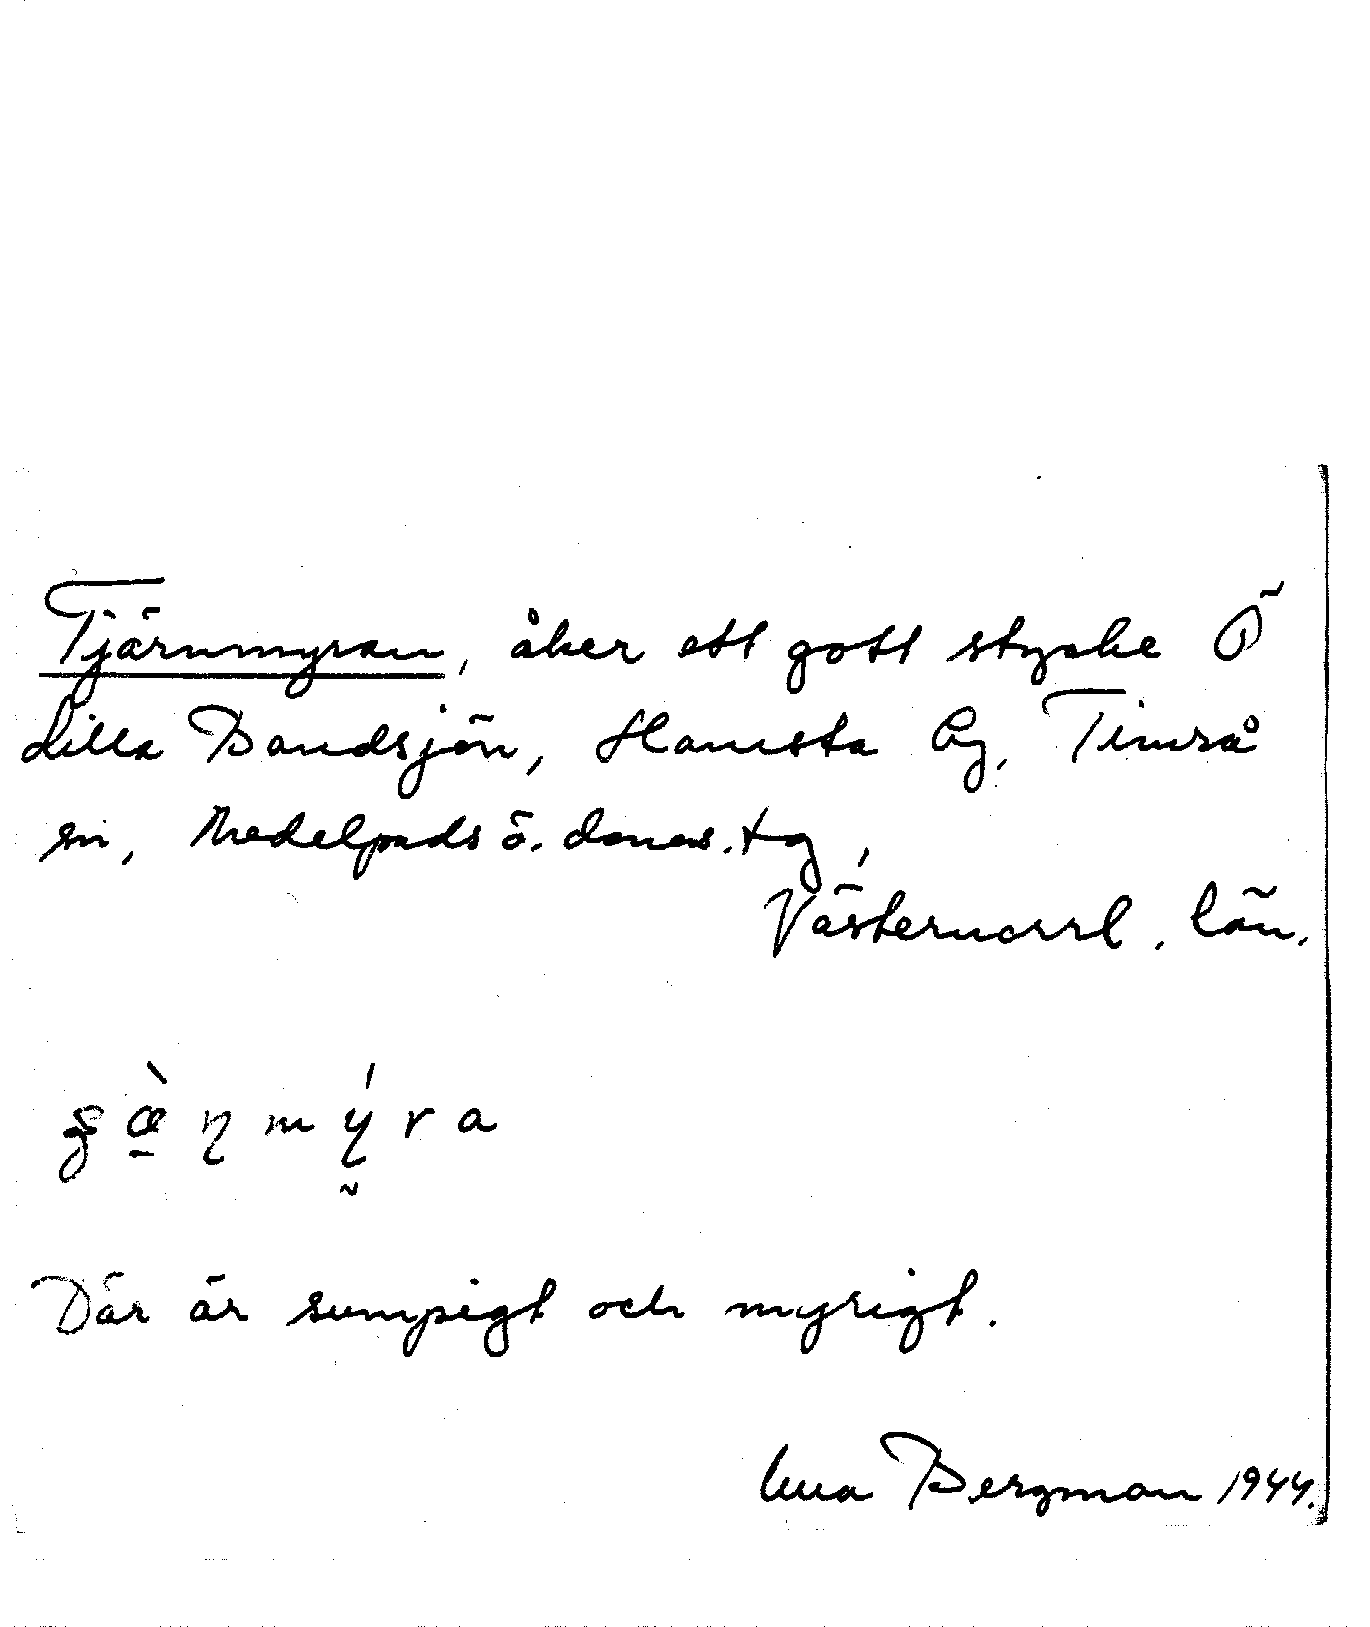 Tjärnmyran, åker ett gott stycke Ö
Lilla Bandsjön, Hamsta by, Timrå
sn, Medelpads ö. doms. tg,
Västernorrl. län.
m ý r a
Där är sumpigt och myrigt.
Bergman 1944.